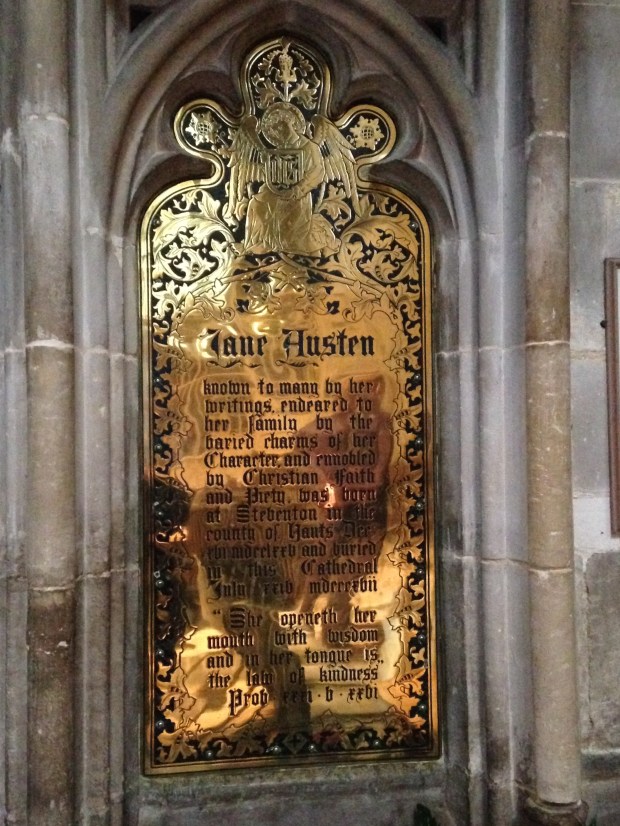 Jane Austen
known to many by her
writings, endeared to
her family by the
varied charms of her
Character, and ennobled
by Christian Faith
and Piety, was born
at Steventon in the
county of Hants Dec
xvi mdcclxxv and buried
in this Cathedral
July xxiv mdcccxvii
"She openeth her
mouth with wisdom
and in her tongue is
the law of kindness"
Prov xxxi · v · xxvi